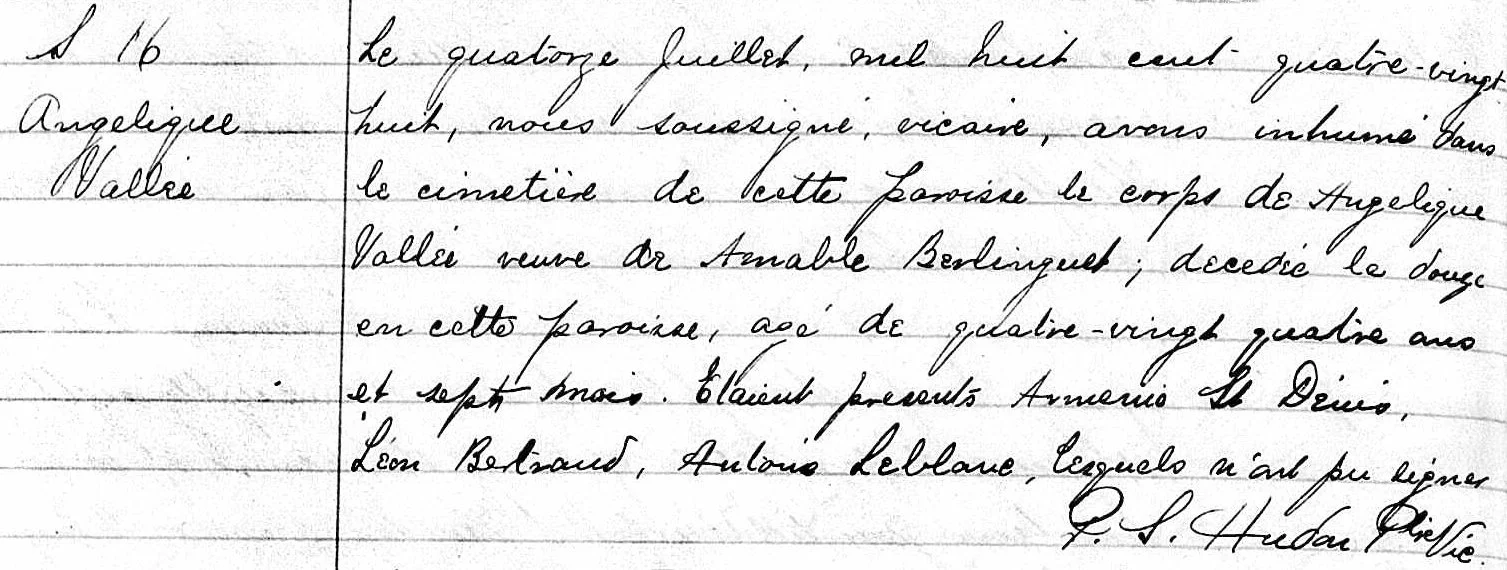 S 16
Angelique
Vallée
Le quatorze Juillet, mil huit cent quatre-vingt
huit, nous soussigné, vicaire, avons inhumé dans
le cimetière de cette paroisse le corps de Angelique
Vallée veuve de Amable Berlinguet; decedée le douze
en cette paroisse, agé de quatre-vingt quatre ans
et sept mois. Etaient presents St Denis,
Léon Bertrand, Antoine Leblanc, lesquels n'ont pu signer
P. S. Hudon Ptre Vic.